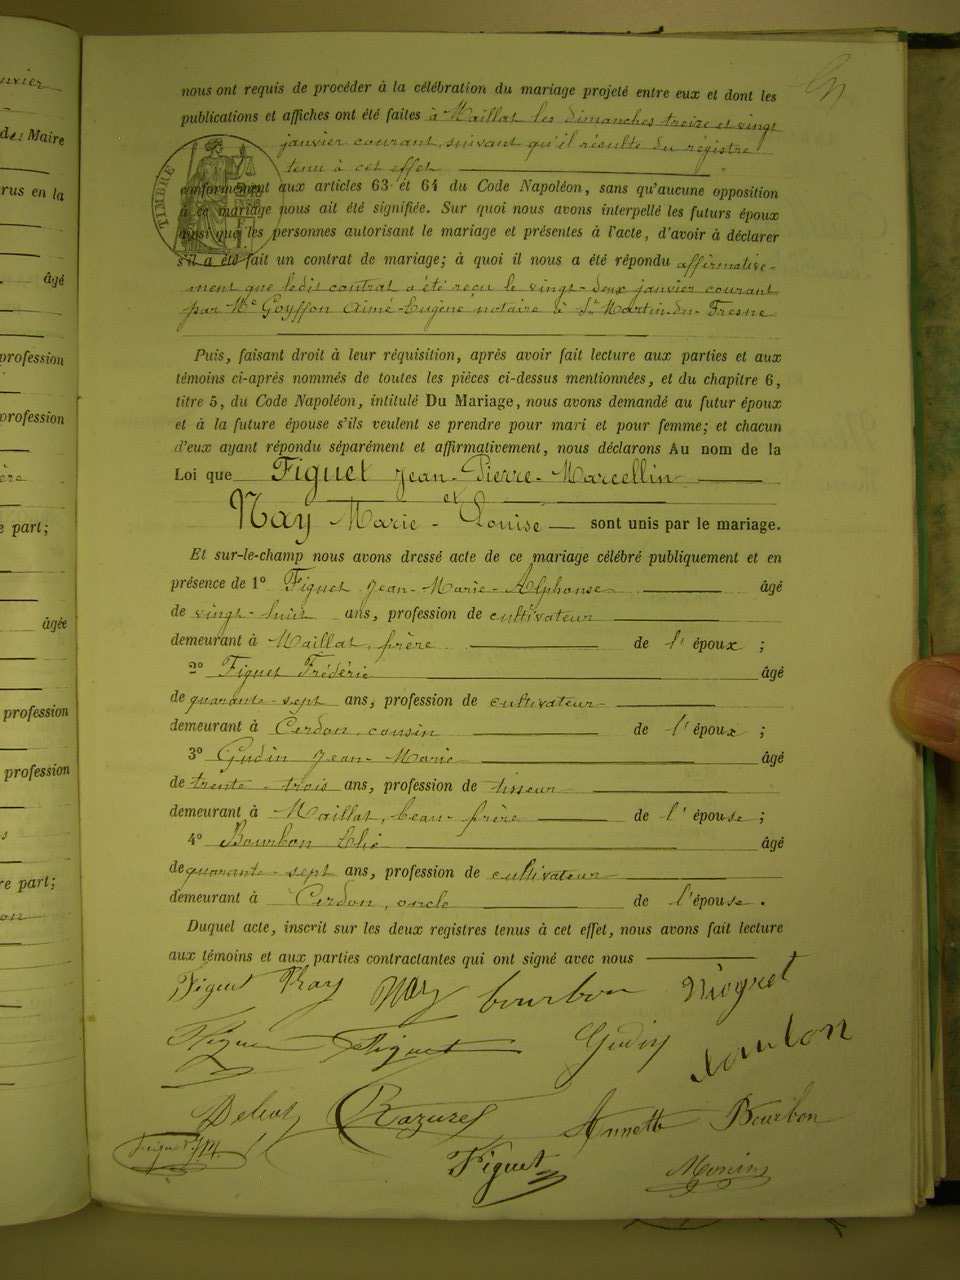 nous ont requis de procéder à la célébration du mariage projeté entre eux et dont les
publications et affiches ont été faites à Maillat les dimanches treize et vingt
janvier courant, suivant qu'il résulte du registre
tenu à cet effet
TIMBRE
conformément aux articles 63 et 64 du Code Napoléon, sans qu'aucune opposition
à ce mariage nous ait été signifiée. Sur quoi nous avons interpellé les futurs époux
ainsi que les personnes autorisant le mariage et présentes à l'acte, d'avoir à déclarer
s'il a été fait un contrat de mariage; à quoi il nous a été répondu affirmative-
ment que ledit contrat a été reçu le vingt-deux janvier courant
par Me Goyffon Aimé-Eugène notaire à St Martin-du-Fresne
Puis, faisant droit à leur réquisition, après avoir fait lecture aux parties et aux
témoins ci-après nommés de toutes les pièces ci-dessus mentionnées, et du chapitre 6,
titre 5, du Code Napoléon, intitulé Du Mariage, nous avons demandé au futur époux
et à la future épouse s'ils veulent se prendre pour mari et pour femme; et chacun
d'eux ayant répondu séparément et affirmativement, nous déclarons Au nom de la
Loi que Figuet Jean-Pierre-Marcellin
et
Nay Marie-Louise sont unis par le mariage.
Et sur-le-champ nous avons dressé acte de ce mariage célébré publiquement et en
présence de 1° Figuet Jean-Marie-Alphonse âgé
de vingt-huit ans, profession de cultivateur
demeurant à Maillat, frère de l'époux ;
2° Figuet Frédéric âgé
de quarante-sept ans, profession de cultivateur
demeurant à Cerdon, cousin de l'époux ;
3° Gudin Jean-Marie âgé
de trente-trois ans, profession de tisseur
demeurant à Maillat, beau-frère de l'épouse ;
4° Bourbon Elie âgé
de quarante-sept ans, profession de cultivateur
demeurant à Cerdon, oncle de l'épouse.
Duquel acte, inscrit sur les deux registres tenus à cet effet, nous avons fait lecture
aux témoins et aux parties contractantes qui ont signé avec nous
Figuet Nay Nay bourbon
Figuet Figuet Gudin
Annette Bourbon
Figuet Monin
de: Maire
rus en la
âgé
profession
profession
e part;
âgée
profession
profession
re part;